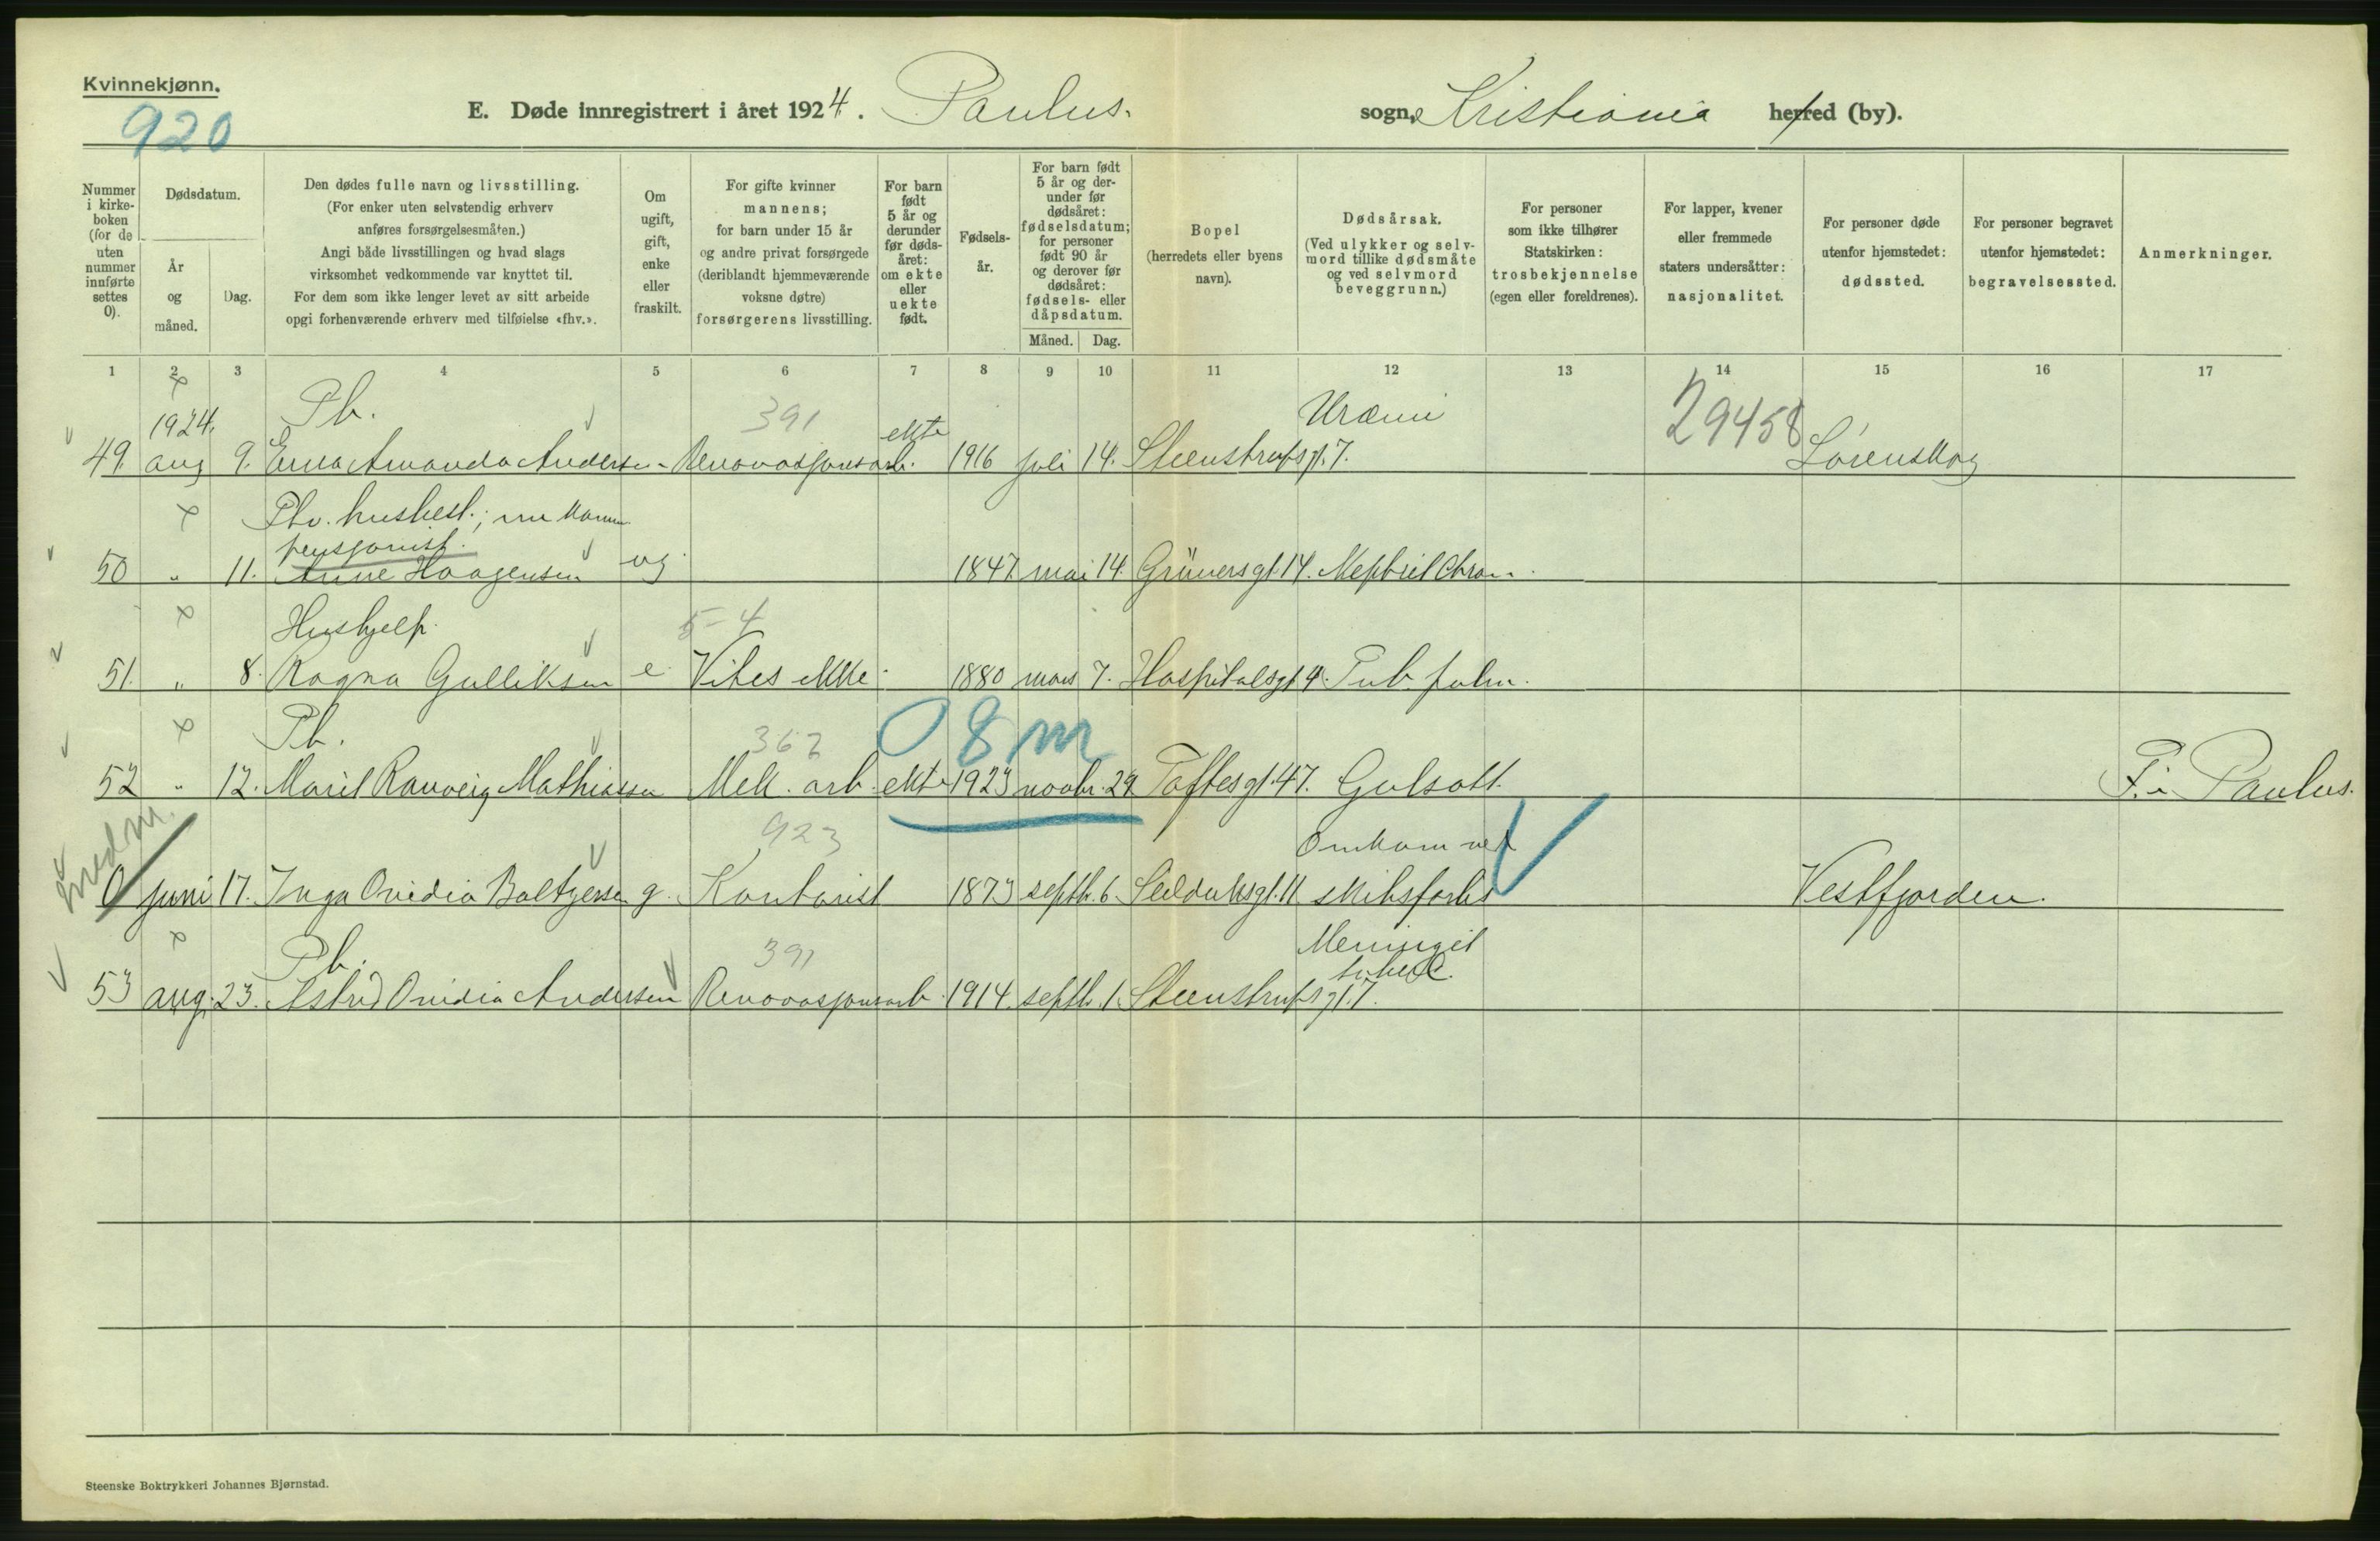 Kvinnekjønn.
920
E. Døde innregistrert i året 1924. Paulus. sogn, Kristiania herred (by).
Nummer i kirke-boken (for de uten nummer innførte settes 0).
Dødsdatum.
År og måned.
Dag.
Den dødes fulle navn og livsstilling.
(For enker uten selvstendig erhverv anføres forsørgelsesmåten.)
Angi både livsstillingen og hvad slags virksomhet vedkommende var knyttet til.
For dem som ikke lenger levet av sitt arbeide opgi forhenværende erhverv med tilføielse «fhv.».
Om ugift, gift, enke eller fraskilt.
For gifte kvinner mannens; for barn under 15 år og andre privat forsørgede (deriblandt hjemmeværende voksne døtre) forsørgerens livsstilling.
For barn født 5 år og derunder før døds-året: om ekte eller uekte født.
Fødsels-år.
For barn født 5 år og der-under før dødsåret: fødselsdatum; for personer født 90 år og derover før dødsåret: fødsels- eller dåpsdatum.
Måned. Dag.
Bopel (herredets eller byens navn).
Dødsårsak. (Ved ulykker og selv-mord tillike dødsmåte og ved selvmord beveggrunn.)
For personer som ikke tilhører Statskirken: trosbekjennelse (egen eller foreldrenes).
For lapper, kvener eller fremmede staters undersåtter: nasjonalitet.
For personer døde utenfor hjemstedet: dødssted.
For personer begravet utenfor hjemstedet: begravelsessted.
Anmerkninger.
1 2 3 4 5 6 7 8 9 10 11 12 13 14 15 16 17
1924. Pb. 391 ekte Uræmi 29458
49. aug 9. Erna Amanda Andersen Renovasjonsarb. 1916 juli 14. Steenstrupsgt. 7. Lørenskog
husbest.;
pensjonist.
50 " 11. Anne Haagensen ug. 1847 mai 14. Grünersgt. 14.
Hushjelp. 5-4
51. " 8. Ragna Gulliksen e. Vites ikke. 1880 mars 7. Hospitalsgt 4. Tub. pulm.
Pb. 367 0 8 m
52 " 12. Marit Ranveig Mathiassen Mek. arb. ekte 1923 novbr. 29 Toftesgt. 47. Gulsott. F. i Paulus.
medm. 923 Omkom ved
0 juni 17. Inga Ovidia Baltzersen g. Kontorist 1873 septb. 6. Seilduksgt. 11 skibsforlis Vestfjorden.
Pb. 391 Meningit
tuberc.
53 aug. 23. Astrid Ovidia Andersen Renovasjonsarb. 1914. septb. 1. Steenstrupsgt. 7.
Steenske Boktrykkeri Johannes Bjørnstad.